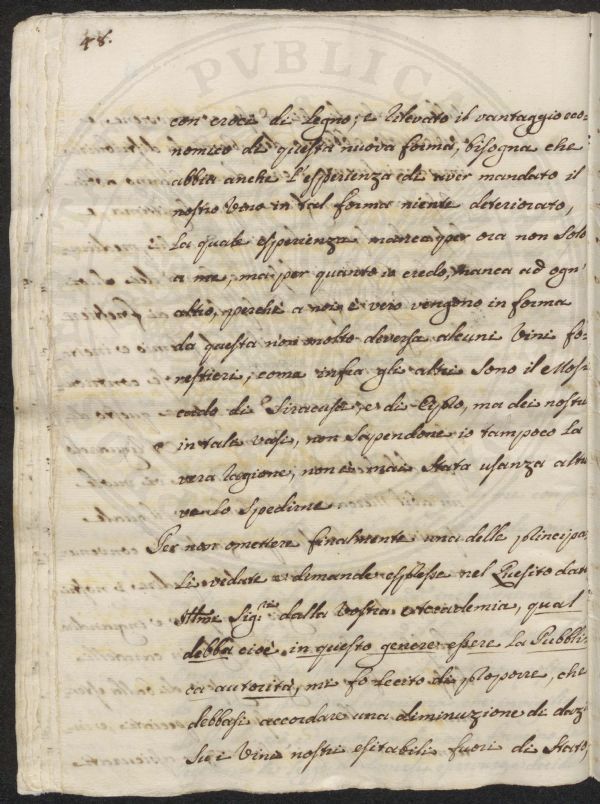 48.
con croci di legno; e rilevato il vantaggio eco-
nomico di questa nuova forma, bisogna che
abbia anche l'esperienza di aver mandato il
nostro Vino in tal forma niente deteriorato,
La quale esperienza manca per ora non solo
a me, ma per quanto io credo, manca ad ogn'
altro, perchè a noi è vero vengono in forma
da questa non molto deversa alcuni Vini fo-
restieri, come infra gli altri sono il Mos-
cado di Siracusa, e di Cipro, ma dei nostri
in tale vasi, non sapendone io tampoco la
vera ragione, non è mai stata usanza altro
ve lo spedirne
Per non omettere finalmente una delle principa-
li vedute e dimande espresse nel Quesito dato
Illme Sigri dalla Vostra Accademia, qual
debba cioè in questo genere essere la Pubbli-
ca autorità, mi fo lecito di proporre, che
debbasi accordare una diminuzione di dazj
su i Vini nostri esitabili fuori di Stato,
PVBLICA